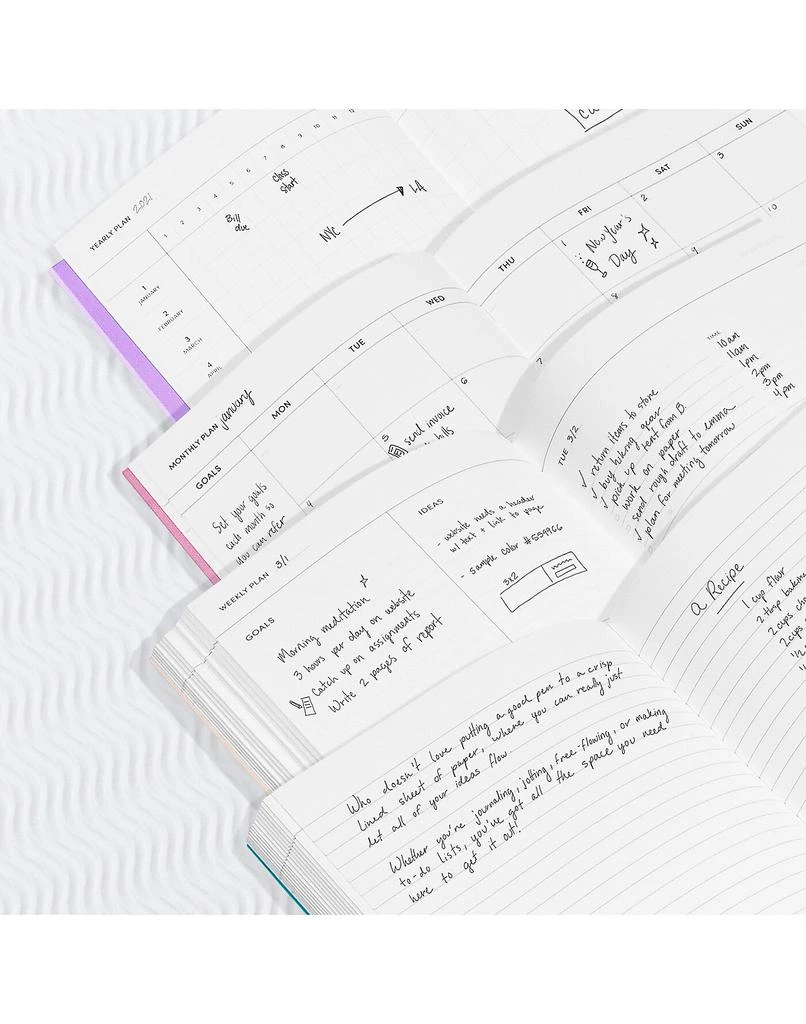 YEARLY PLAN 2021
1 2 3 4 5 6 7 8 9 10 11 12
Bill
due
Class
start
NYC
LA
1
JANUARY
2
FEBRUARY
3
MARCH
4
APRIL
MONTHLY PLAN january
GOALS
MON
TUE
WED
THU
FRI
SAT
SUN
1
2
3
New Year's
Day
4
5
6
7
8
9
10
send invoice
bills
Set your goals
each month so
you can refer
WEEKLY PLAN 3/1
GOALS
Morning meditation
3 hours per day on website
Catch up on assignments
Write 2 pages of report
IDEAS
- website needs a header
w/ text + link to page
- sample color #559966
3x2
TUE 3/2
TIME
return items to store
buy hiking gear
pick up tent from B.
work on paper
send rough draft to emma
plan for meeting tomorrow
10am
11am
1pm
2pm
3pm
4pm
Who doesn't love putting a good pen to a crisp
lined sheet of paper, where you can really just
let all of your ideas flow.
Whether you're journaling, jotting, free-flowing, or making
to-do lists, you've got all the space you need
here to get it out!
a Recipe
1 cup flour
2 tbsp baking
2 cups
2 cups
1/2